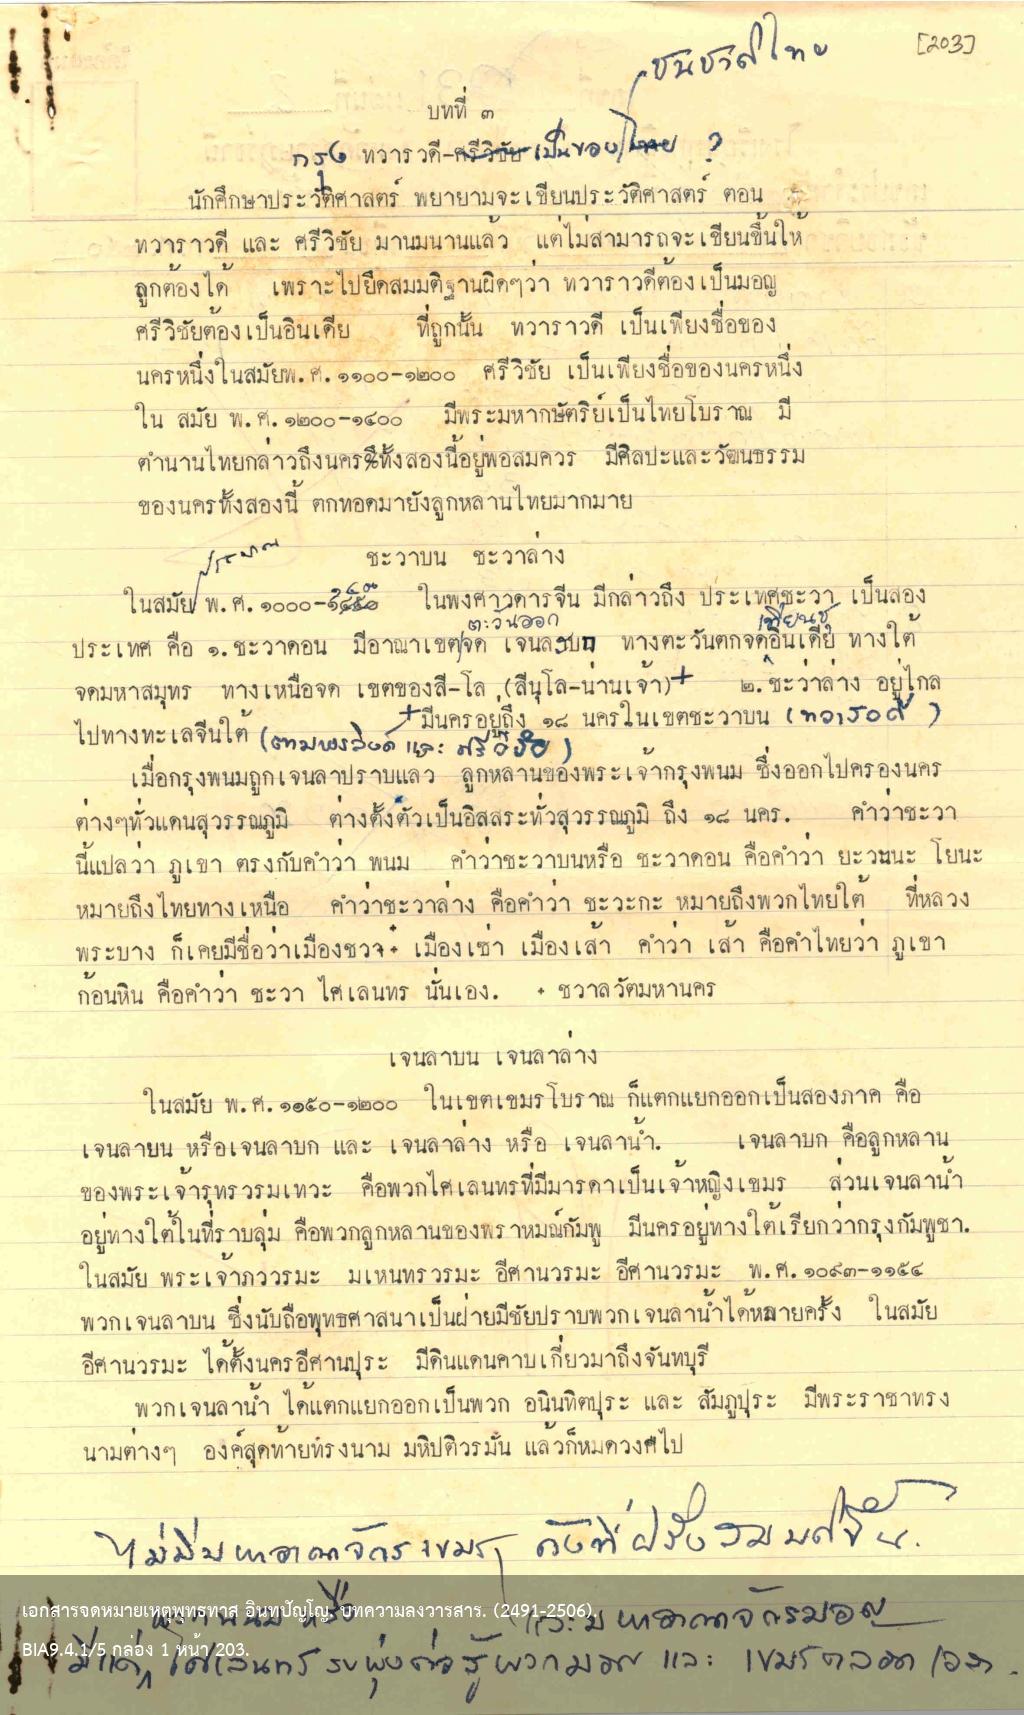 [203]
ชนชาติไทย
บทที่ ๓
กรุง ทวารวดี-ศรีวิชัย เป็นของ ?
นักศึกษาประวัติศาสตร์ พยายามจะเขียนประวัติศาสตร์ ตอน
ทวาราวดี และ ศรีวิชัย มานมนานแล้ว แต่ไม่สามารถจะเขียนขึ้นให้
ถูกต้องได้ เพราะไปยึดสมมติฐานผิดๆว่า ทวาราวดีต้องเป็นมอญ
ศรีวิชัยต้องเป็นอินเดีย ที่ถูกนั้น ทวาราวดี เป็นเพียงชื่อของ
นครหนึ่งในสมัยพ.ศ.๑๑๐๐-๑๒๐๐ ศรีวิชัย เป็นเพียงชื่อของนครหนึ่ง
ใน สมัย พ.ศ.๑๒๐๐-๑๔๐๐ มีพระมหากษัตริย์เป็นไทยโบราณ มี
ตำนานไทยกล่าวถึงนครทั้งสองนี้อยู่พอสมควร มีศิลปะและวัฒนธรรม
ของนครทั้งสองนี้ ตกทอดมายังลูกหลานไทยมากมาย
ชะวาบน ชะวาล่าง
ประมาณ
ในสมัย พ.ศ.๑๐๐๐- ในพงศาวดารจีน มีกล่าวถึง ประเทศชะวา เป็นสอง
ตะวันออก เทียนชุ
ประเทศ คือ ๑.ชะวาดอน มีอาณาเขตจด เจนละบก ทางตะวันตกจดอินเดีย ทางใต้
จดมหาสมุทร ทางเหนือจด เขตของสี-โล (สีนุโล-น่านเจ้า)+ ๒.ชะว่าล่าง อยู่ไกล
+มีนครอยู่ถึง ๑๘ นครในเขตชะวาบน (ทวารวดี)
ไปทางทะเลจีนใต้ (ตามพรลิงค์ และ ศรีวิชัย)
เมื่อกรุงพนมถูกเจนลาปราบแลว ลูกหลานของพระเจ้ากรุงพนม ซึ่งออกไปครองนคร
ต่างๆทั่วแดนสุวรรณภูมิ ต่างตั้งตัวเป็นอิสสระทั่วสุวรรณภูมิ ถึง ๑๘ นคร. คำว่าชะวา
นี้แปลว่า ภูเขา ตรงกับคำว่า พนม คำว่าชะวาบนหรือ ชะวาดอน คือคำว่า ยะวะนะ โยนะ
หมายถึงไทยทางเหนือ คำว่าชะวาล่าง คือคำว่า ชะวะกะ หมายถึงพวกไทยใต้ ที่หลวง
พระบาง ก็เคยมีชื่อว่าเมืองชวา+ เมืองเซ่า เมืองเส้า คำว่า เส้า คือคำไทยว่า ภูเขา
ก้อนหิน คือคำว่า ชะวา ไศเลนทร นั่นเอง. + ชวาลวัตมหานคร
เจนลาบน เจนลาล่าง
ในสมัย พ.ศ.๑๑๕๐-๑๒๐๐ ในเขตเขมรโบราณ ก็แตกแยกออกเป็นสองภาค คือ
เจนลายน หรือเจนลาบก และ เจนลาล่าง หรือ เจนลาน้ำ. เจนลาบก คือลูกหลาน
ของพระเจ้ารุทรวรมเทวะ คือพวกไศเลนทรที่มีมารดาเป็นเจ้าหญิงเขมร ส่วนเจนลาน้ำ
อยู่ทางใต้ในที่ราบลุ่ม คือพวกลูกหลานของพราหมณ์กัมพู มีนครอยู่ทางใต้เรียกว่ากรุงกัมพูชา.
ในสมัย พระเจ้าภววรมะ มเหนทรวรมะ อีศานวรมะ อีศานวรมะ พ.ศ.๑๐๙๓-๑๑๕๔
พวกเจนลาบน ซึ่งนับถือพุทธศาสนาเป็นฝ่ายมีชัยปราบพวกเจนลาน้ำได้หลายครั้ง ในสมัย
อีศานวรมะ ได้ตั้งนครอีศานปุระ มีดินแดนคาบเกี่ยวมาถึงจันทบุรี
พวกเจนลาน้ำ ได้แตกแยกออกเป็นพวก อนินทิตปุระ และ สัมภูปุระ มีพระราชาทรง
นามต่างๆ องค์สุดท้ายทรงนาม มหิปติวรมัน แล้วก็หมดวงศไป
ไม่มีมหาอาณาจักรเขมร ดังที่ฝรั่งสมมติขึ้น.
และมหาอาณาจักรมอญ
มีแต่ ไศเลนทร รบพุ่งต่อสู้พวกมอญ และ เขมรตลอดเวลา.
เอกสารจดหมายเหตุพุทธทาส อินทปัญโญ. บทความลงวารสาร. (2491-2506).
BIA9.4.1/5 กล่อง 1 หน้า 203.